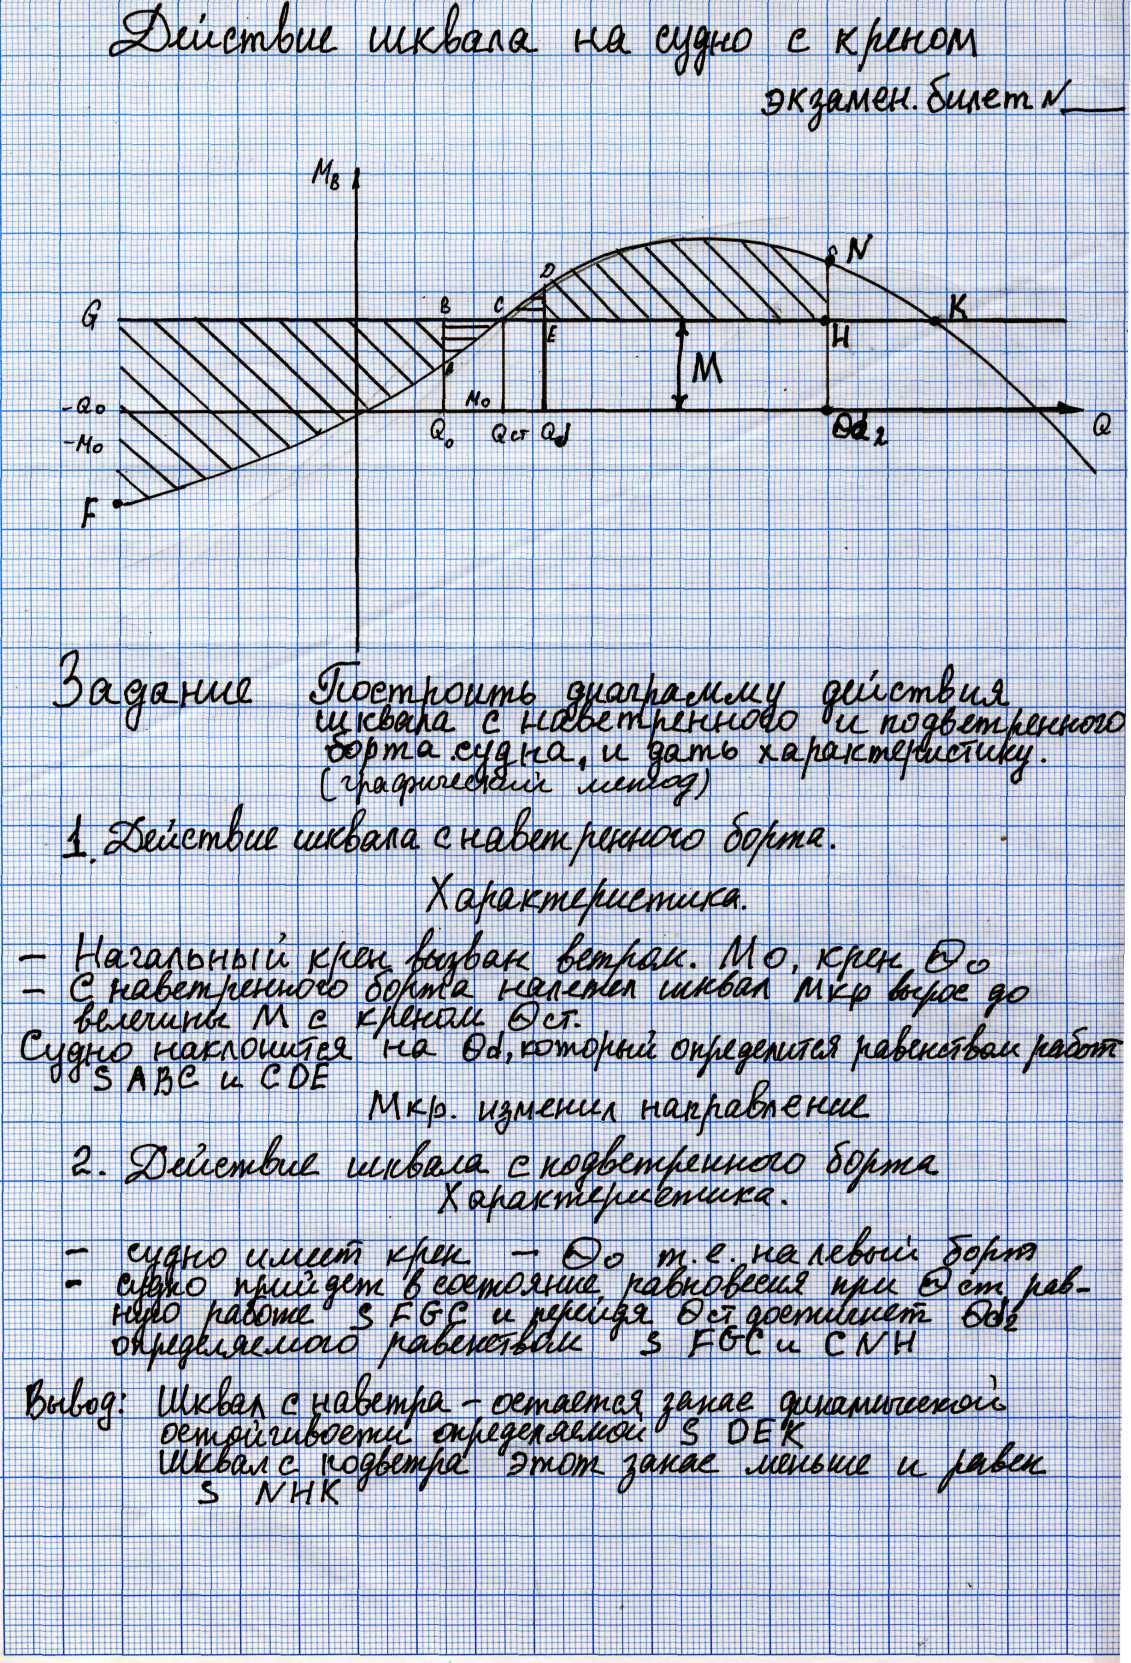 Действие шквала на судно с креном
экзамен. билет N___
Mв
G
B
C
D
E
N
H
K
A
M
-Q₀
-M₀
F
M₀
Q₀
Qст
Qd
Θd₂
Q
Задание Построить диаграмму действия
шквала с наветренного и подветренного
борта судна, и дать характеристику.
(графический метод)
1. Действие шквала с наветренного борта.
Характеристика.
- Начальный крен вызван ветром. M₀, крен Θ₀
- С наветренного борта налетел шквал Мкр вырос до
велечины M с креном Θст.
Судно наклонится на Θd, который определится равенством работ
S ABC и CDE
Мкр. изменил направление
2. Действие шквала с подветренного борта
Характеристика.
- судно имеет крен - Θ₀ т.е. на левый борт
- судно прийдет в состояние равновесия при Θст рав-
ную работе S FGC и перейдя Θст достигнет Θd₂
определяемого равенством S FGC и CNH
Вывод: Шквал с наветра - остается запас динамической
остойчивости определяемой S DEK
Шквал с подветра этот запас меньше и равен
S NHK